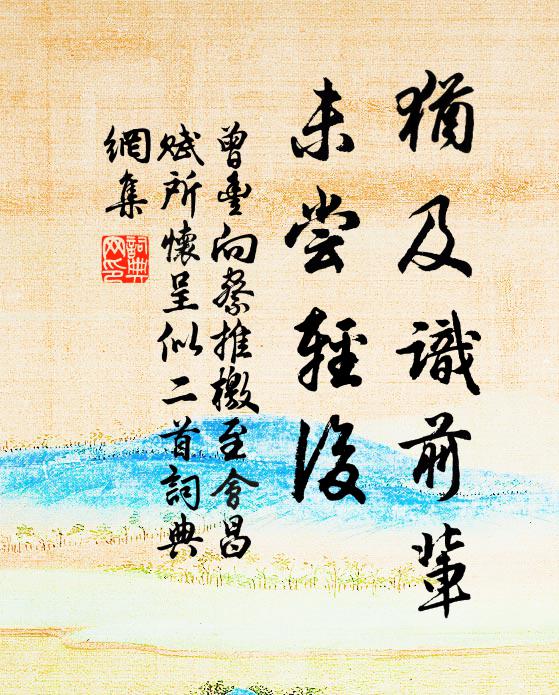 猶及識前輩
未尝輕後
曾豐向察推檄至會昌
賦所懷呈似二首詞典
網集
詞典网印